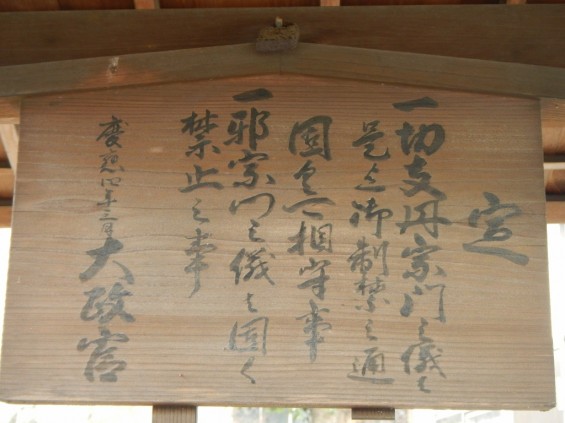 定
一切支丹宗門之儀は
是迄御制禁之通
固く可相守事
一邪宗門之儀は固く
禁止之事
慶應四年三月 大政官